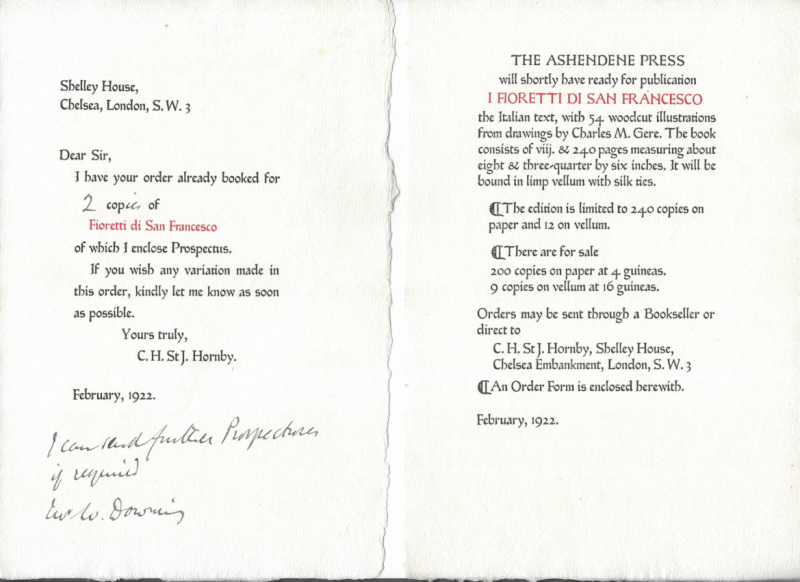 Shelley House,
Chelsea, London, S. W. 3
Dear Sir,
I have your order already booked for
2 copies of
Fioretti di San Francesco
of which I enclose Prospectus.
If you wish any variation made in
this order, kindly let me know as soon
as possible.
Yours truly,
C. H. St J. Hornby.
February, 1922.
I can send further Prospectuses
if required
W. Downing
THE ASHENDENE PRESS
will shortly have ready for publication
I FIORETTI DI SAN FRANCESCO
the Italian text, with 54 woodcut illustrations
from drawings by Charles M. Gere. The book
consists of viij. & 240 pages measuring about
eight & three-quarter by six inches. It will be
bound in limp vellum with silk ties.
⁋ The edition is limited to 240 copies on
paper and 12 on vellum.
⁋ There are for sale
200 copies on paper at 4 guineas.
9 copies on vellum at 16 guineas.
Orders may be sent through a Bookseller or
direct to
C. H. St J. Hornby, Shelley House,
Chelsea Embankment, London, S. W. 3
⁋ An Order Form is enclosed herewith.
February, 1922.